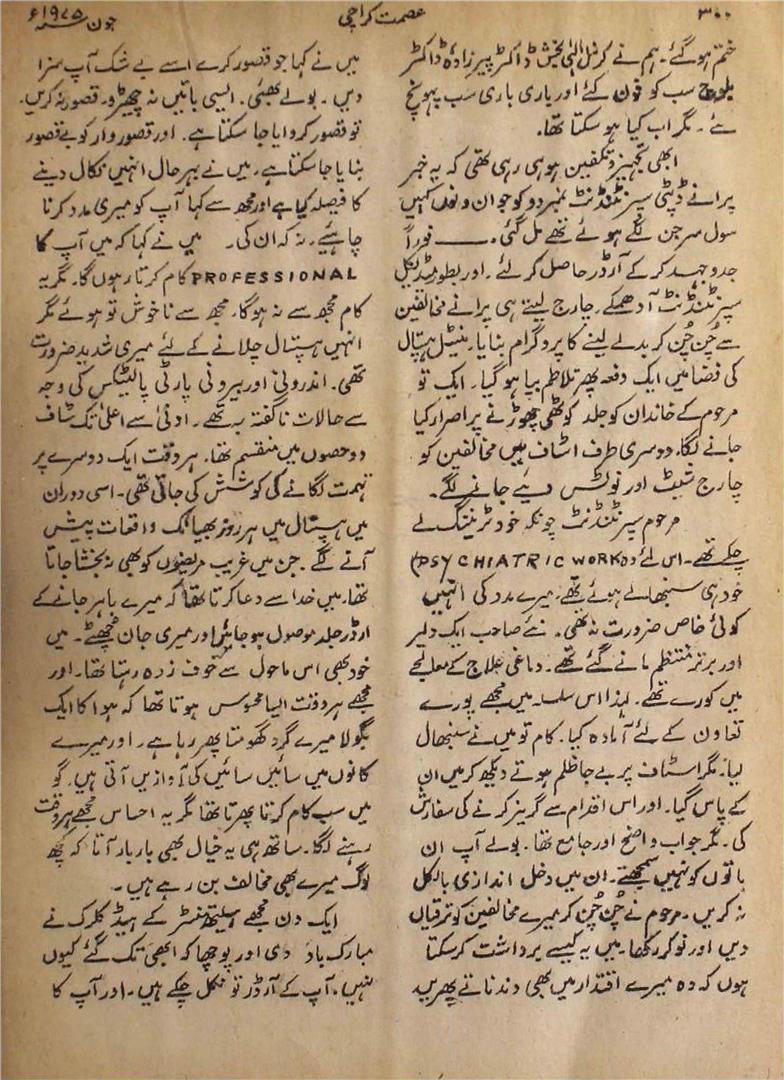 ۳۰۰
عصمت کراچی
جون ۱۹۷۵ء
ختم ہو گئے۔ ہم نے کرنل الٰہی بخش ڈاکٹر پیرزادہ ڈاکٹر
بلوچ سب کو فون کئے اور باری باری سب پہونچ
گئے۔ مگر اب کیا ہو سکتا تھا۔
ابھی تجہیز و تکفین ہو ہی رہی تھی کہ یہ خبر
پرانے ڈپٹی سپرنٹنڈنٹ نمبر دو کو جو ان دنوں کہیں
سول سرجن لگے ہوئے تھے مل گئی۔ ــــ فوراً
جدوجہد کر کے آرڈر حاصل کر لئے۔ اور بطور میڈیکل
سپرنٹنڈنٹ آ دھمکے۔ چارج لیتے ہی پرانے مخالفین
سے چُن چُن کر بدلے لینے کا پروگرام بنایا۔ مینٹل ہسپتال
کی فضا میں ایک دفعہ پھر تلاطم بپا ہو گیا۔ ایک تو
مرحوم کے خاندان کو جلد کوٹھی چھوڑنے پر اصرار کیا
جانے لگا۔ دوسری طرف اسٹاف میں مخالفین کو
چارج شیٹ اور نوٹس دیئے جانے لگے۔
مرحوم سپرنٹنڈنٹ چونکہ خود ٹریننگ لے
چکے تھے۔ اس لئے وہ (PSYCHIATRIC WORK
خود ہی سنبھالے ہوئے تھے۔ میرے مدد کی انہیں
کوئی خاص ضرورت نہ تھی۔ نئے صاحب ایک دلیر
اور برتر منتظم مانے گئے تھے۔ دماغی علاج کے معالجے
میں کورے تھے۔ لہٰذا اس سلسلہ میں مجھے پورے
تعاون کے لئے آمادہ کیا۔ کام تو میں نے سنبھال
لیا۔ مگر اسٹاف پر بے جا ظلم ہوتے دیکھ کر میں ان
کے پاس گیا۔ اور اس اقدام سے گریز کرنے کی سفارش
کی۔ مگر جواب واضح اور جامع تھا۔ بولے آپ ان
باتوں کو نہیں سمجھتے۔ ان میں دخل اندازی بالکل
نہ کریں۔ مرحوم نے چُن چُن کر میرے مخالفین کو ترقیاں
دیں اور نوکر رکھا۔ میں یہ کیسے برداشت کر سکتا
ہوں کہ وہ میرے اقتدار میں بھی دندناتے پھریں
میں نے کہا جو قصور کرے اسے بے شک آپ سزا
دیں۔ بولے بھئی۔ ایسی باتیں نہ چھیڑو۔ قصور نہ کریں۔
تو قصور کروایا جا سکتا ہے۔ اور قصور وار کو بے قصور
بنایا جا سکتا ہے۔ میں نے بہر حال انہیں نکال دینے
کا فیصلہ کیا ہے اور مجھ سے کہا آپ کو میری مدد کرنا
چاہیئے۔ نہ کہ ان کی۔ میں نے کہا کہ میں آپ کا
PROFESSIONAL کام کرتا رہوں گا۔ مگر یہ
کام مجھ سے نہ ہوگا۔ مجھ سے ناخوش تو ہوئے مگر
انہیں ہسپتال چلانے کے لئے میری شدید ضرورت
تھی۔ اندرونی اور بیرونی پارٹی پالیٹکس کی وجہ
سے حالات ناگفتہ بہ تھے۔ ادنیٰ سے اعلیٰ تک سٹاف
دو حصوں میں منقسم تھا۔ ہر وقت ایک دوسرے پر
تہمت لگانے کی کوشش کی جاتی تھی۔ اسی دوران
میں ہسپتال میں ہر روز بھیانک واقعات پیش
آنے لگے۔ جن میں غریب مریضوں کو بھی نہ بخشا جاتا
تھا۔ میں خدا سے دعا کرتا تھا کہ میرے باہر جانے کے
آرڈر جلد موصول ہو جائیں اور میری جان چُھٹے۔ میں
خود بھی اس ماحول سے خوف زدہ رہتا تھا۔ اور
مجھے ہر وقت ایسا محسوس ہوتا تھا کہ ہوا کا ایک
بگولا میرے گرد گھومتا پھر رہا ہے۔ اور میرے
کانوں میں سائیں سائیں کی آوازیں آتی ہیں۔ گو
میں سب کام کرتا پھرتا تھا مگر یہ احساس مجھے ہر وقت
رہنے لگا۔ ساتھ ہی یہ خیال بھی بار بار آتا کہ کچھ
لوگ میرے بھی مخالف بن رہے ہیں۔
ایک دن مجھے ہیلتھ منسٹر کے ہیڈ کلرک نے
مبارک باد دی اور پوچھا کہ ابھی تک گئے کیوں
نہیں۔ آپ کے آرڈر تو نکل چکے ہیں۔ اور آپ کا